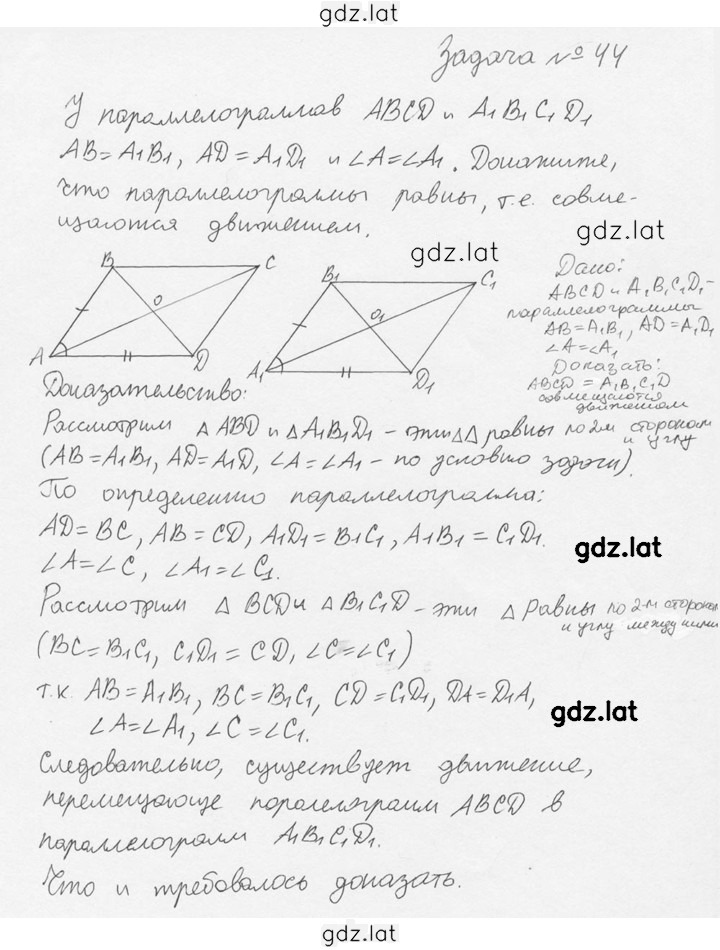 gdz.lat
Задача № 44
У параллелограммов ABCD и A₁B₁C₁D₁
AB=A₁B₁, AD=A₁D₁ и ∠A=∠A₁. Докажите,
что параллелограммы равны, т.е. совме-
щаются движением.
gdz.lat
B C B₁ C₁
O O₁
A D A₁ D₁
Дано:
ABCD и A₁B₁C₁D₁-
параллелограммы
AB=A₁B₁, AD=A₁D₁
∠A=∠A₁
Доказать:
ABCD = A₁B₁C₁D
совмещаются
движением
Доказательство:
Рассмотрим △ ABD и △ A₁B₁D₁ - эти △△ равны по 2м сторонам
и углу
(AB=A₁B₁, AD=A₁D, ∠A=∠A₁ - по условию задачи).
По определению параллелограмма:
AD=BC, AB=CD, A₁D₁=B₁C₁, A₁B₁=C₁D₁.
gdz.lat
∠A=∠C, ∠A₁=∠C₁.
Рассмотрим △ BCD и △ B₁C₁D - эти △ равны по 2-м сторонам
и углу между ними
(BC=B₁C₁, C₁D₁=CD, ∠C=∠C₁)
т.к. AB=A₁B₁, BC=B₁C₁, CD=C₁D₁, DA=D₁A,
∠A=∠A₁, ∠C=∠C₁.
gdz.lat
Следовательно, существует движение,
перемещающе поралелограмм ABCD в
параллелограмм A₁B₁C₁D₁.
Что и требовалось доказать.
gdz.lat